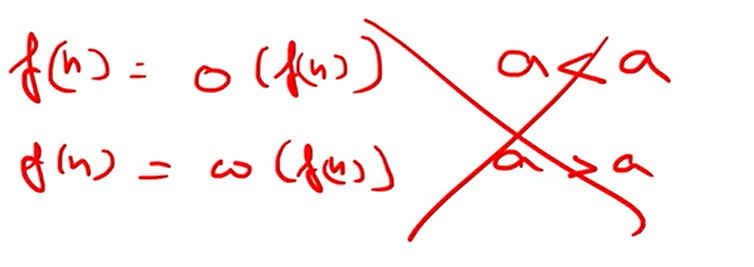 f(n) = o (f(n)) a < a
f(n) = ω (f(n)) a > a